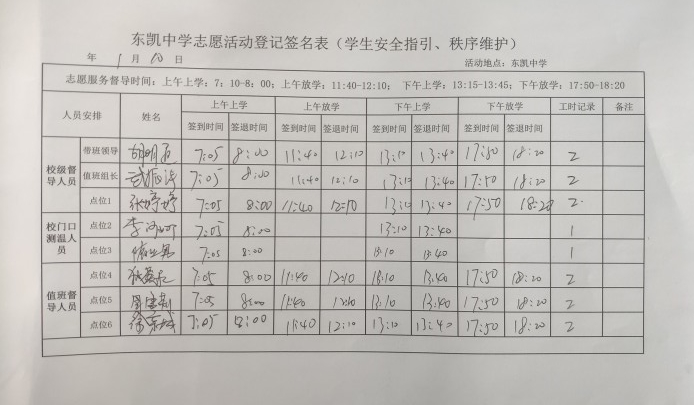 东凯中学志愿活动登记签名表（学生安全指引、秩序维护）
年 1 月 10 日 活动地点：东凯中学
志愿服务督导时间：上午上学：7：10-8：00；上午放学：11:40-12:10； 下午上学：13:15-13:45；下午放学：17:50-18:20
人员安排 姓名 上午上学 上午放学 下午上学 下午放学 工时记录 备注
签到时间 签退时间 签到时间 签退时间 签到时间 签退时间 签到时间 签退时间
校级督导人员 带班领导 7:05 8:00 11:40 12:10 13:10 13:40 17:50 18:20 2
值班组长 7:05 8:00 11:40 12:10 13:10 13:40 17:50 18:20 2
点位1 张婷婷 7:05 8:00 11:40 12:10 13:10 13:40 17:50 18:20 2
校门口测温人员 点位2 7:05 8:00 13:10 13:40 1
点位3 7:05 8:00 13:10 13:40 1
值班督导人员 点位4 7:05 8:00 11:40 12:10 13:10 13:40 17:50 18:20 2
点位5 7:05 8:00 11:40 12:10 13:10 13:40 17:50 18:20 2
点位6 7:05 8:00 11:40 12:10 13:10 13:40 17:50 18:20 2